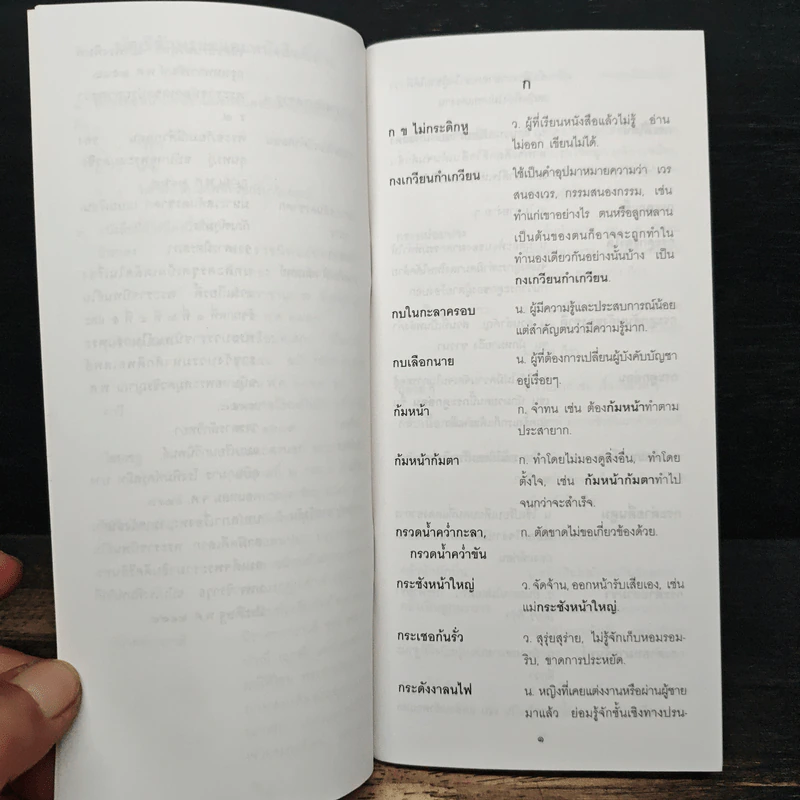 ก
ก ข ไม่กระดิกหู ว. ผู้ที่เรียนหนังสือแล้วไม่รู้ อ่าน
ไม่ออก เขียนไม่ได้.
กงเกวียนกำเกวียน ใช้เป็นคำอุปมาหมายความว่า เวร
สนองเวร, กรรมสนองกรรม, เช่น
ทำแก่เขาอย่างไร ตนหรือลูกหลาน
เป็นต้นของตนก็อาจจะถูกทำใน
ทำนองเดียวกันอย่างนั้นบ้าง เป็น
กงเกวียนกำเกวียน.
กบในกะลาครอบ น. ผู้มีความรู้และประสบการณ์น้อย
แต่สำคัญตนว่ามีความรู้มาก.
กบเลือกนาย น. ผู้ที่ต้องการเปลี่ยนผู้บังคับบัญชา
อยู่เรื่อยๆ.
ก้มหน้า ก. จำทน เช่น ต้องก้มหน้าทำตาม
ประสายาก.
ก้มหน้าก้มตา ก. ทำโดยไม่มองดูสิ่งอื่น, ทำโดย
ตั้งใจ, เช่น ก้มหน้าก้มตาทำไป
จนกว่าจะสำเร็จ.
กรวดน้ำคว่ำกะลา, ก. ตัดขาดไม่ขอเกี่ยวข้องด้วย.
กรวดน้ำคว่ำขัน
กระชังหน้าใหญ่ ว. จัดจ้าน, ออกหน้ารับเสียเอง, เช่น
แม่กระชังหน้าใหญ่.
กระเชอก้นรั่ว ว. สุรุ่ยสุร่าย, ไม่รู้จักเก็บหอมรอม-
ริบ, ขาดการประหยัด.
กระดังงาลนไฟ น. หญิงที่เคยแต่งงานหรือผ่านผู้ชาย
มาแล้ว ย่อมรู้จักชั้นเชิงทางปรน-
๑